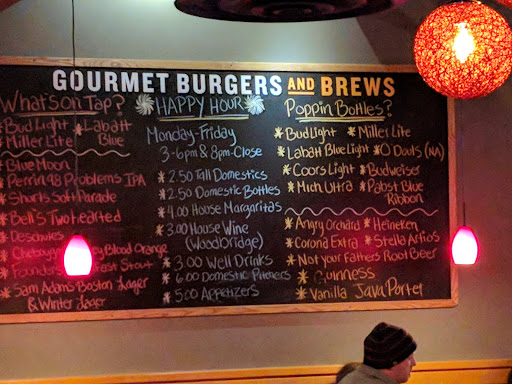 GOURMET BURGERS AND BREWS
What's on Tap?
* Bud Light * Labatt Blue
* Miller Lite
* Blue Moon
* Perrin 98 Problems IPA
* Shorts Soft Parade
* Bell's Two hearted
* Deschutes
* Blood Orange
* Founders Stout
* Sam Adams Boston Lager
& Winter Lager
HAPPY HOUR
Monday-Friday
3-6pm & 8pm-Close
* 2.50 Tall Domestics
* 2.50 Domestic Bottles
* 4.00 House Margaritas
* 3.00 House Wine
(Woodbridge)
* 3.00 Well Drinks
* 6.00 Domestic Pitchers
* 5.00 Appetizers
Poppin Bottles?
* Bud Light * Miller Lite
* Labatt Blue Light * O'Douls (NA)
* Coors Light * Budweiser
* Mich Ultra * Pabst Blue
Ribbon
* Angry Orchard * Heineken
* Corona Extra * Stella Artois
* Not your Fathers Root Beer
* Guinness
* Vanilla Java Porter